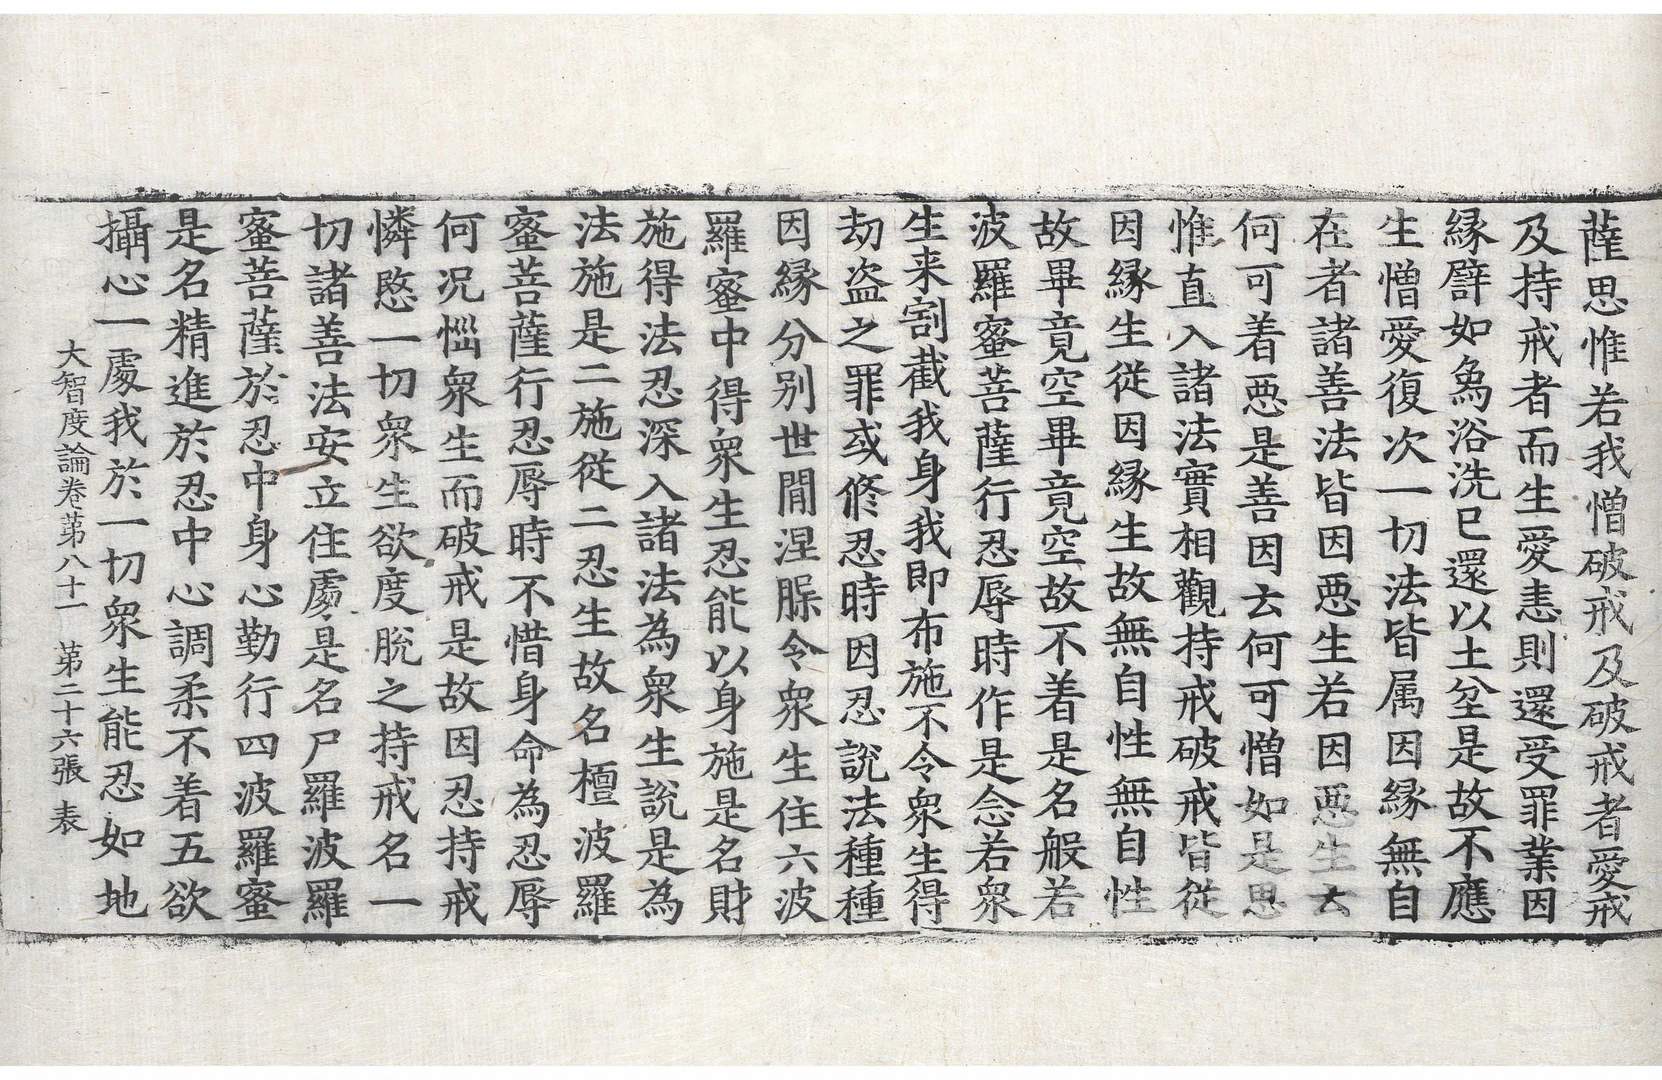 薩思惟若我憎破戒及破戒者愛戒
及持戒者而生愛恚則還受罪業因
縁譬如象浴洗已還以土坌是故不應
生憎愛復次一切法皆属因縁無自
在者諸善法皆因惡生若因惡生云
何可着惡是善因云何可憎如是思
惟直入諸法實相觀持戒破戒皆從
因縁生從因縁生故無自性無自性
故畢竟空畢竟空故不着是名般若
波羅蜜菩薩行忍辱時作是念若衆
生来割截我身我即布施不令衆生得
劫盗之罪或修忍時因忍說法種種
因縁分別世間涅槃令衆生住六波
羅蜜中得衆生忍能以身施是名財
施得法忍深入諸法為衆生說是為
法施是二施從二忍生故名檀波羅
蜜菩薩行忍辱時不惜身命為忍辱
何况惱衆生而破戒是故因忍持戒
憐愍一切衆生欲度脫之持戒名一
切諸善法安立住處是名尸羅波羅
蜜菩薩於忍中身心勤行四波羅蜜
是名精進於忍中心調柔不着五欲
攝心一處我於一切衆生能忍如地
大智度論卷第八十一 第二十六張 表